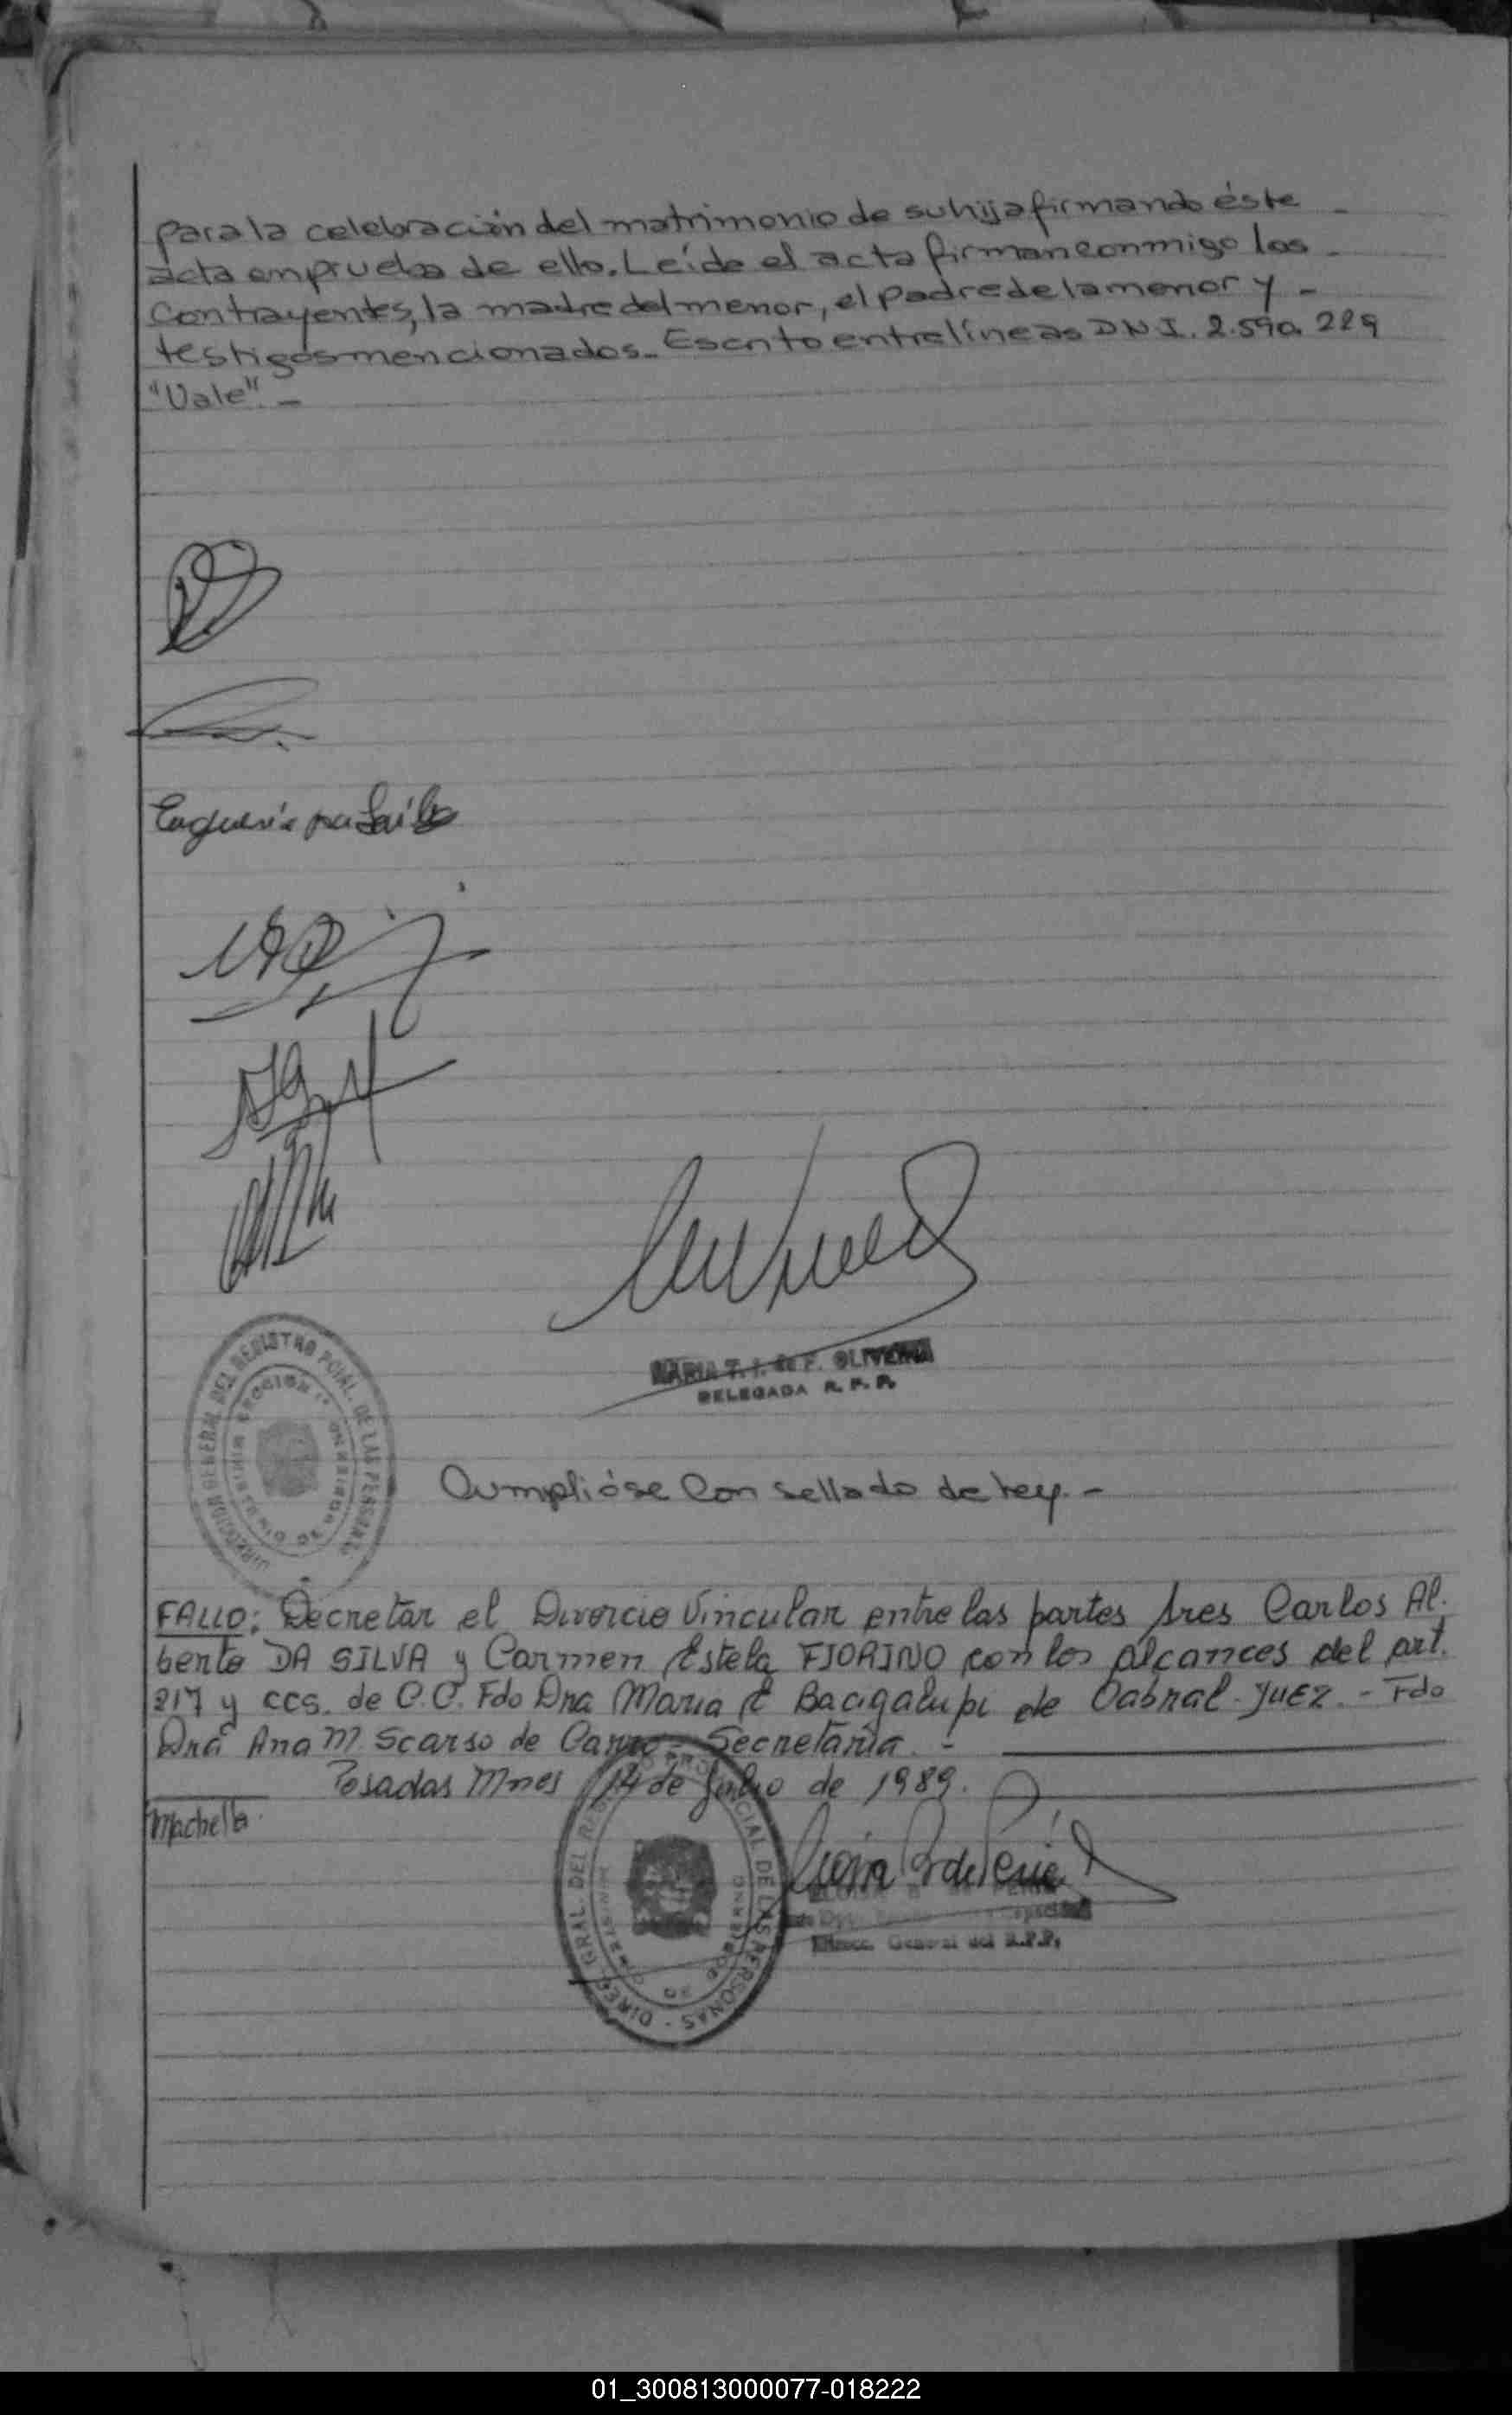 para la celebración del matrimonio de su hija firmando éste -
acta en prueba de ello. Leída el acta firman conmigo los -
Contrayentes, la madre del menor, el padre de la menor y -
testigos mencionados.- Escrito entrelíneas DNI. 2.590.229
"Vale". -
MARIA T. I. de F. OLIVEIRA
DELEGADA R. P. P.
DIRECCION GENERAL DEL REGISTRO PCIAL. DE LAS PERSONAS
Cumplióse Con sellado de ley. -
FALLO: Decretar el Divorcio Vincular entre las partes Sres Carlos Al.
berto DA SILVA y Carmen Estela FIORINO con los alcances del art.
217 y ccs. de C.C. Fdo Dra Maria E Bacigalupi de Cabral - JUEZ. - Fdo
Dra Ana M. Scarso de - Secretaria. -
Posadas Mnes 14 de Julio de 1989.
Machella
DIREC. GRAL. DEL REGISTRO PROVINCIAL DE LAS PERSONAS
Direcc. General del R.P.P.
01_300813000077-018222